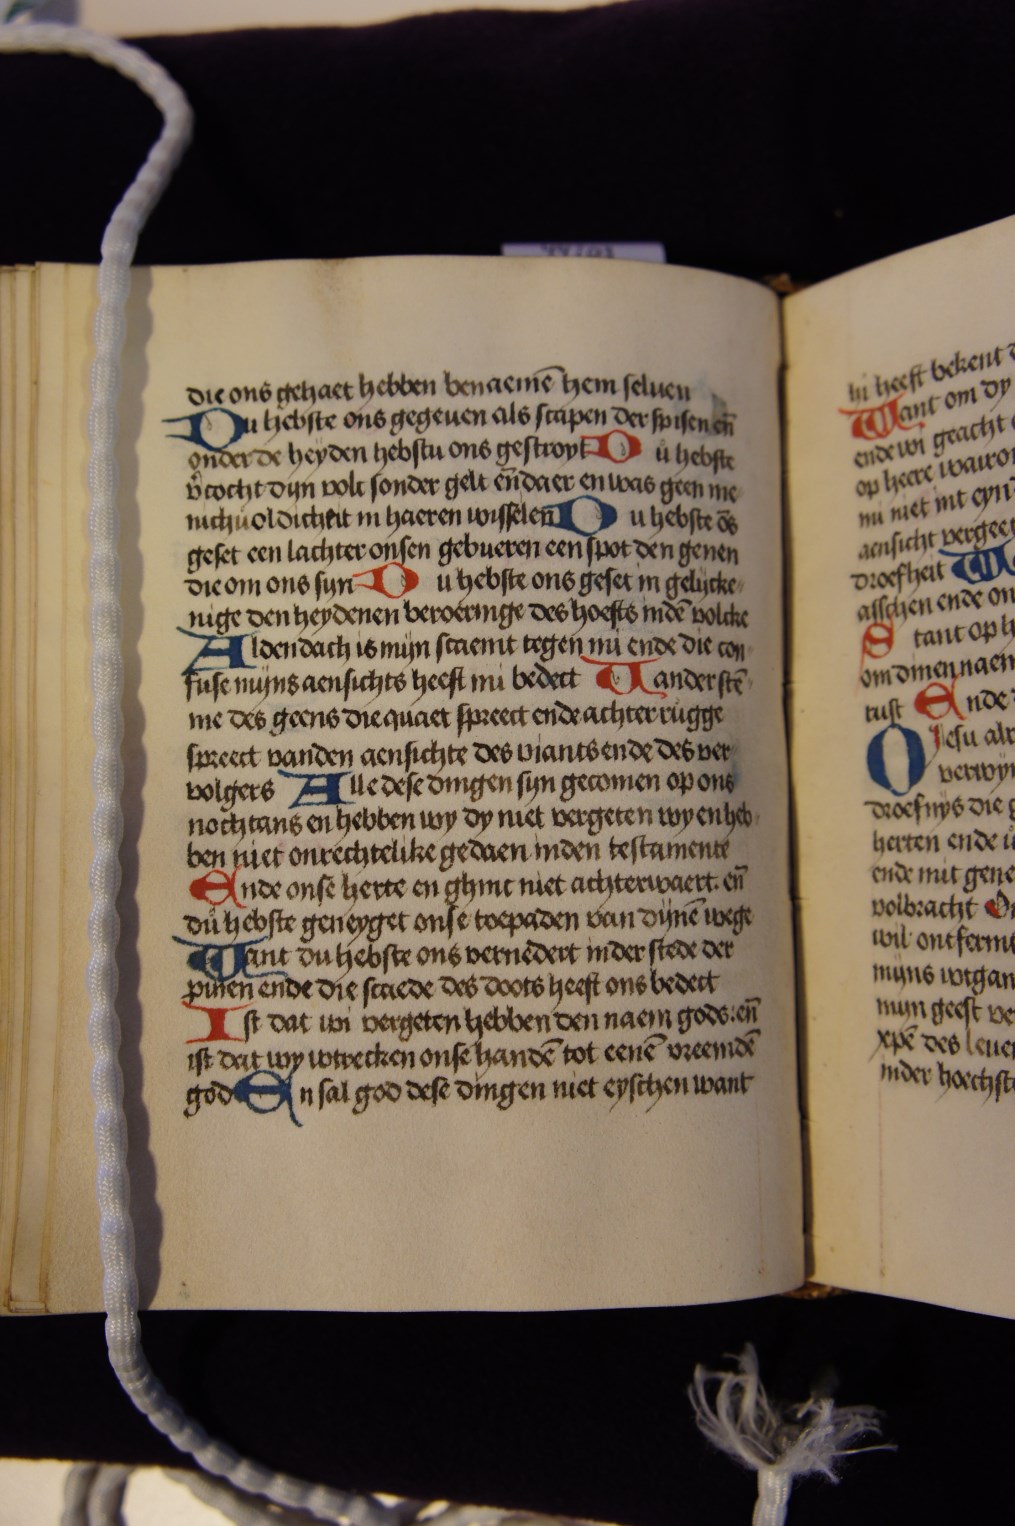 die ons gehaet hebben benaemē hem seluen
Du hebste ons gegeuen als scapen der spisen eñ
onder de heyden hebstu ons gestroyt Du hebste
v̓cocht dijn volc sonder gelt eñ daer en was geen me
nichuoldicheit in haeren wisselen Du hebste ōs
geset een lachter onsen gebueren een spot den genen
die om ons sijn Du hebste ons geset in gelijcke
nige den heydenen beroeringe des hoefts indē volcke
Alden dach is mijn scaemt tegen mi ende die con
fuse mijns aensichts heeft mi bedect Vander stē
me des geens die quaet spreect ende achter rugge
spreect vanden aensichte des viants ende des ver
volgers Alle dese dingen sijn gecomen op ons
nochtans en hebben wy dy niet vergeten wy en heb
ben niet onrechtelike gedaen inden testamente
Ende onse herte en ghinc niet achterwaert. eñ
du hebste geneyget onse toepaden van dijnē wege
Want du hebste ons vernedert inder stede der
pinen ende die scaede des doots heeft ons bedect
Ist dat wi vergeten hebben den naem gods: eñ
ist dat wy wtrecken onse handē tot eenē vreemdē
god En sal god dese dingen niet eyschen want
hi heeft bekent
Want om dy
ende wi geacht
op heere
nu niet int
aensicht
droefheit
asschen ende on
Stant op
om dinen naem
rust Ende
O Jesu
droefnys die
herten ende
ende mit gene
volbracht
wil ontferm
mijns wtgan
mijn geest
xpē des leuen
inder hoechst